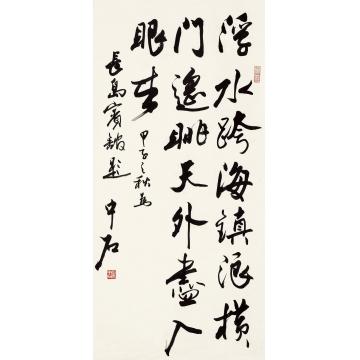 浮水跨海镇浪横
门遥眺天外尽入
眼来
甲子之秋为
长岛宾馆题
中石